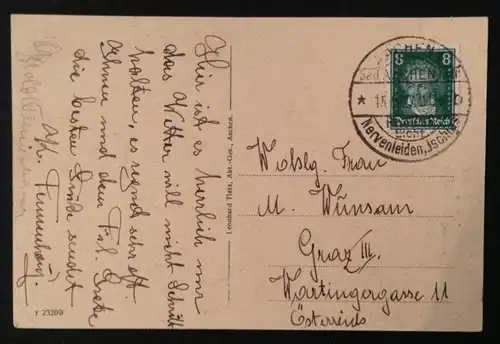 Hier ist es herrlich nur
das Wetter will nicht Schritt
halten, es regnet sehr oft.
Ihnen und dem Frl. Grete
die besten Grüße sendet
r 23209
Leonhard Tietz, Akt.-Ges., Aachen.
8 8
Deutsches Reich
Nervenleiden, Ischias
Wohlg. Frau
M. Wünsam
Graz III.
Wartingergasse 11
Österreich